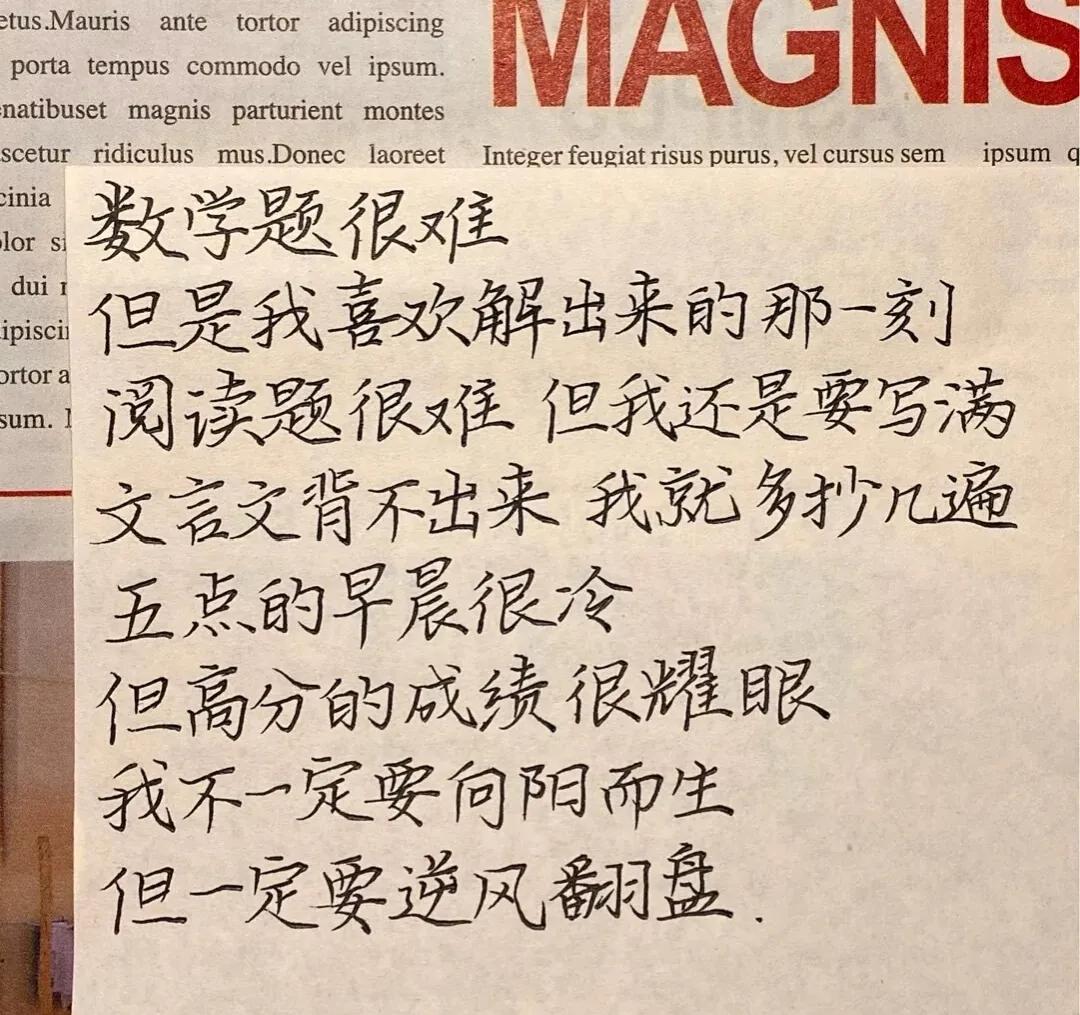 etus.Mauris ante tortor adipiscing
porta tempus commodo vel ipsum.
enatibuset magnis parturient montes
scetur ridiculus mus.Donec laoreet
cinia
olor si
dui
ipiscin
ortor a
sum.
MAGNIS
Integer feugiat risus purus, vel cursus sem ipsum q
数学题很难
但是我喜欢解出来的那一刻
阅读题很难 但我还是要写满
文言文背不出来 我就多抄几遍
五点的早晨很冷
但高分的成绩很耀眼
我不一定要向阳而生
但一定要逆风翻盘.